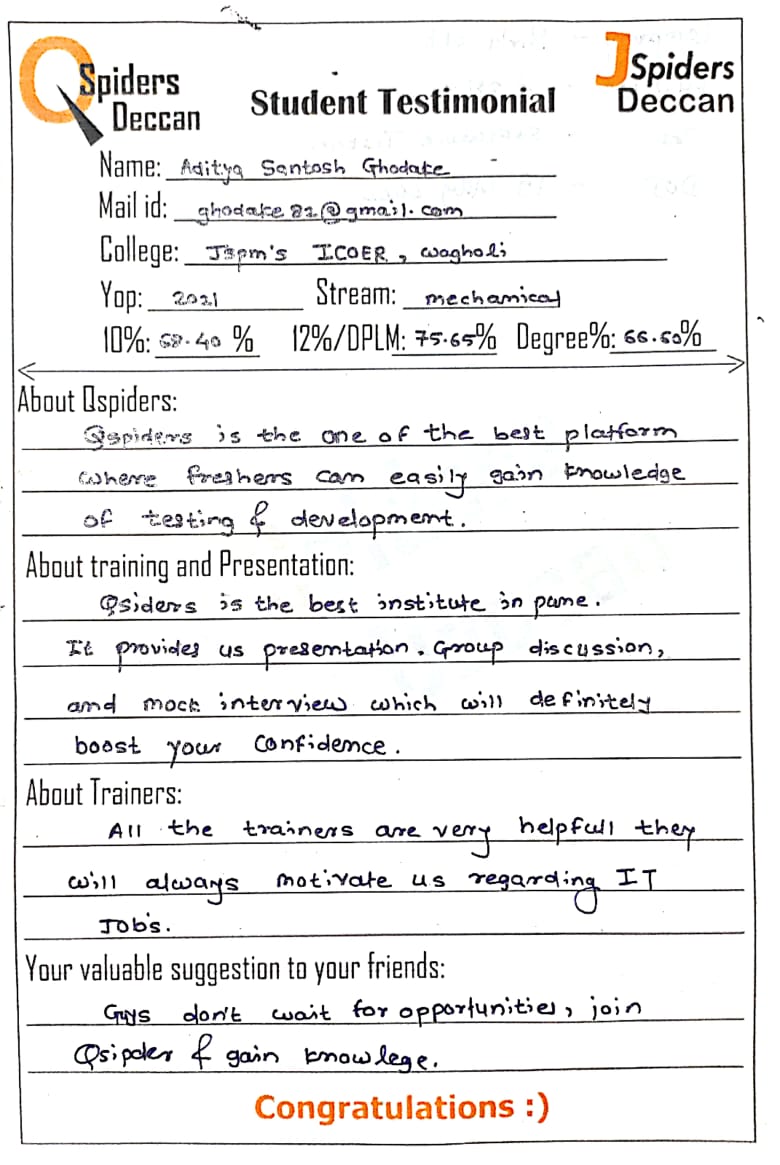 QSpiders
Deccan
Student Testimonial
JSpiders
Deccan
Name: Aditya Santosh Ghodake
Mail id: ghodake82@gmail.com
College: Jspm's ICOER, wagholi
Yop: 2021 Stream: mechanical
10%: 68.40 % 12%/DPLM: 75.65% Degree%: 66.60%
About Qspiders:
Qspiders is the one of the best platform
where freshers can easily gain knowledge
of testing & development.
About training and Presentation:
Qsiders is the best institute in pune.
It provides us presentation. Group discussion,
and mock interview which will definitely
boost your confidence.
About Trainers:
All the trainers are very helpfull they
will always motivate us regarding IT
Job's.
Your valuable suggestion to your friends:
Guys don't wait for opportunities, join
Qsipder & gain knowlege.
Congratulations :)